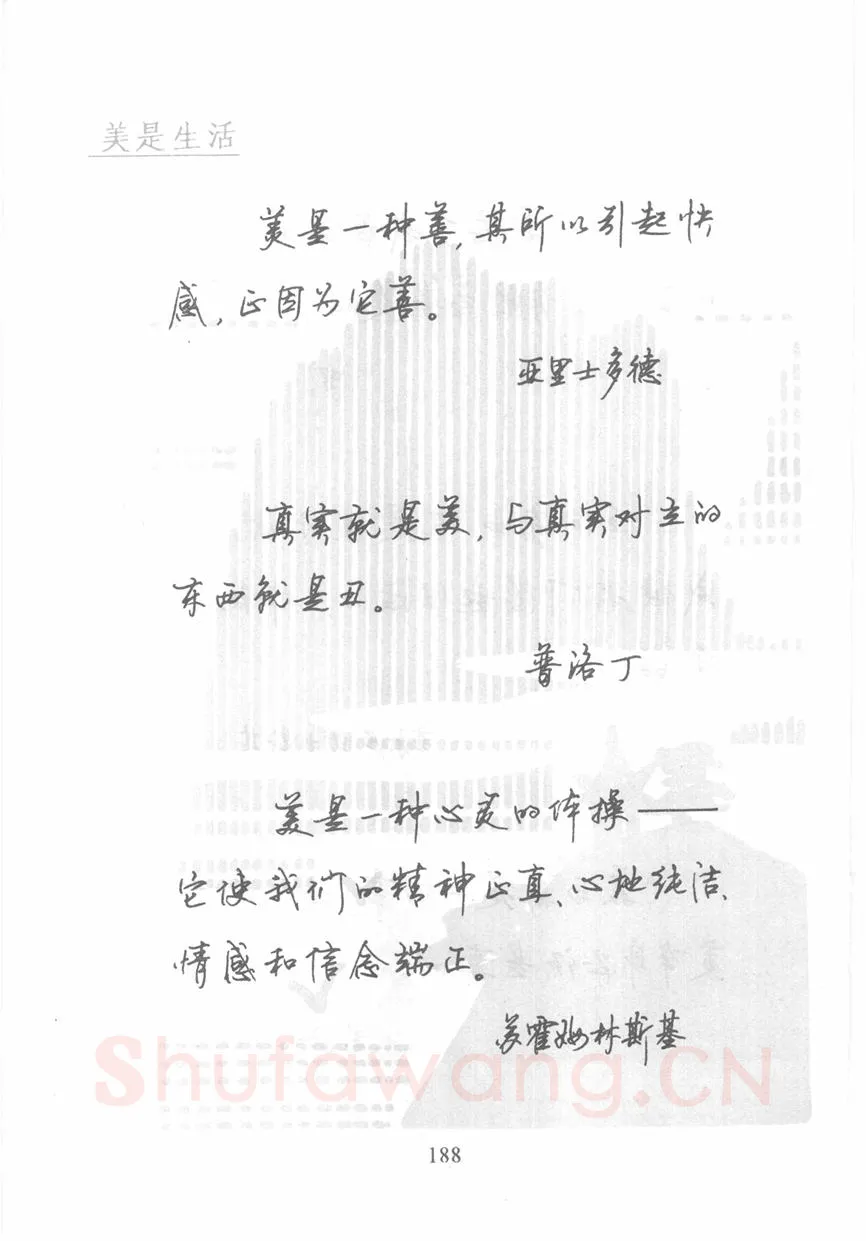 美是生活
美是一种善,其所以引起快
感,正因为它善。
亚里士多德
真实就是美,与真实对立的
东西就是丑。
普洛丁
美是一种心灵的体操——
它使我们的精神正直、心地纯洁、
情感和信念端正。
苏霍姆林斯基
Shufawang.CN
188